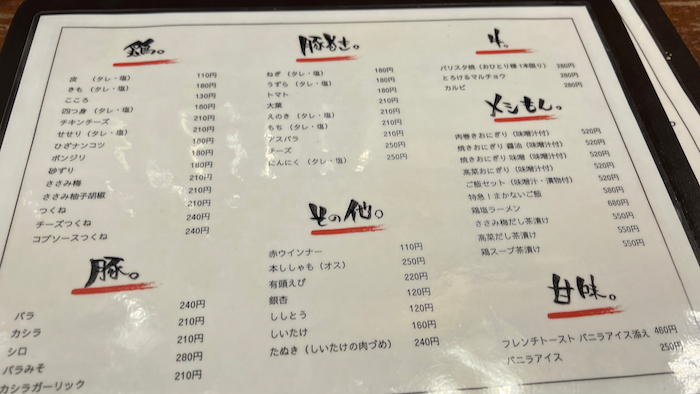 鶏。
皮 （タレ・塩） 110円
きも（タレ・塩） 180円
こころ 130円
四つ身（タレ・塩） 180円
チキンチーズ 210円
せせり（タレ・塩） 210円
ひざナンコツ 180円
ボンジリ 180円
砂ずり 180円
ささみ梅 210円
ささみ柚子胡椒 210円
つくね 210円
チーズつくね 240円
コブソースつくね 240円
豚。
バラ 240円
カシラ 210円
シロ 210円
バラみそ 280円
カシラガーリック 210円
豚巻き。
ねぎ（タレ・塩） 180円
うずら（タレ・塩） 180円
トマト 180円
大葉 210円
えのき（タレ・塩） 180円
もち（タレ・塩） 180円
アスパラ 210円
チーズ 250円
にんにく（タレ・塩） 250円
その他。
赤ウインナー 110円
本ししゃも（オス） 250円
有頭えび 220円
銀杏 120円
ししとう 120円
しいたけ 160円
たぬき（しいたけの肉づめ） 240円
牛。
バリスタ焼（おひとり様1本限り） 280円
とろけるマルチョウ 280円
カルビ 280円
メシもん。
肉巻きおにぎり（味噌汁付） 520円
焼きおにぎり 醤油（味噌汁付） 520円
焼きおにぎり 味噌（味噌汁付） 520円
高菜おにぎり（味噌汁付） 520円
ご飯セット（味噌汁・漬物付） 520円
特急！まかないご飯 580円
鶏塩ラーメン 680円
ささみ梅だし茶漬け 550円
高菜だし茶漬け 550円
鶏スープ茶漬け 550円
甘味。
フレンチトースト バニラアイス添え 460円
バニラアイス 250円